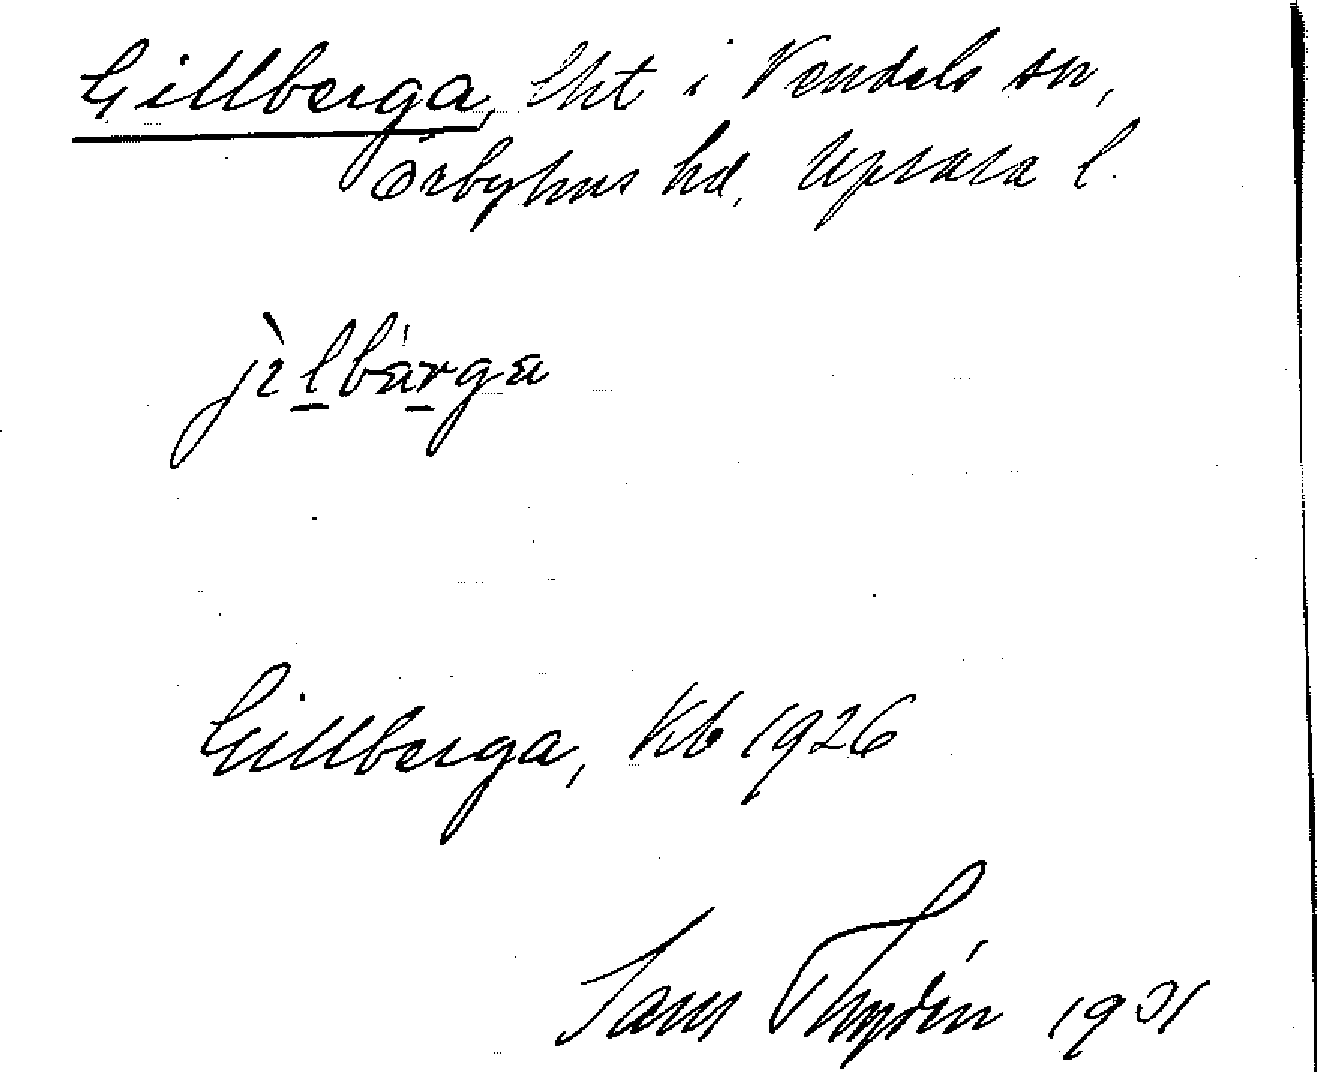 Gillberga, lht i Vendels sn,
Örbyhus hd, Upsala l.
jìlbárga
Gillberga, Kb 1926
1931